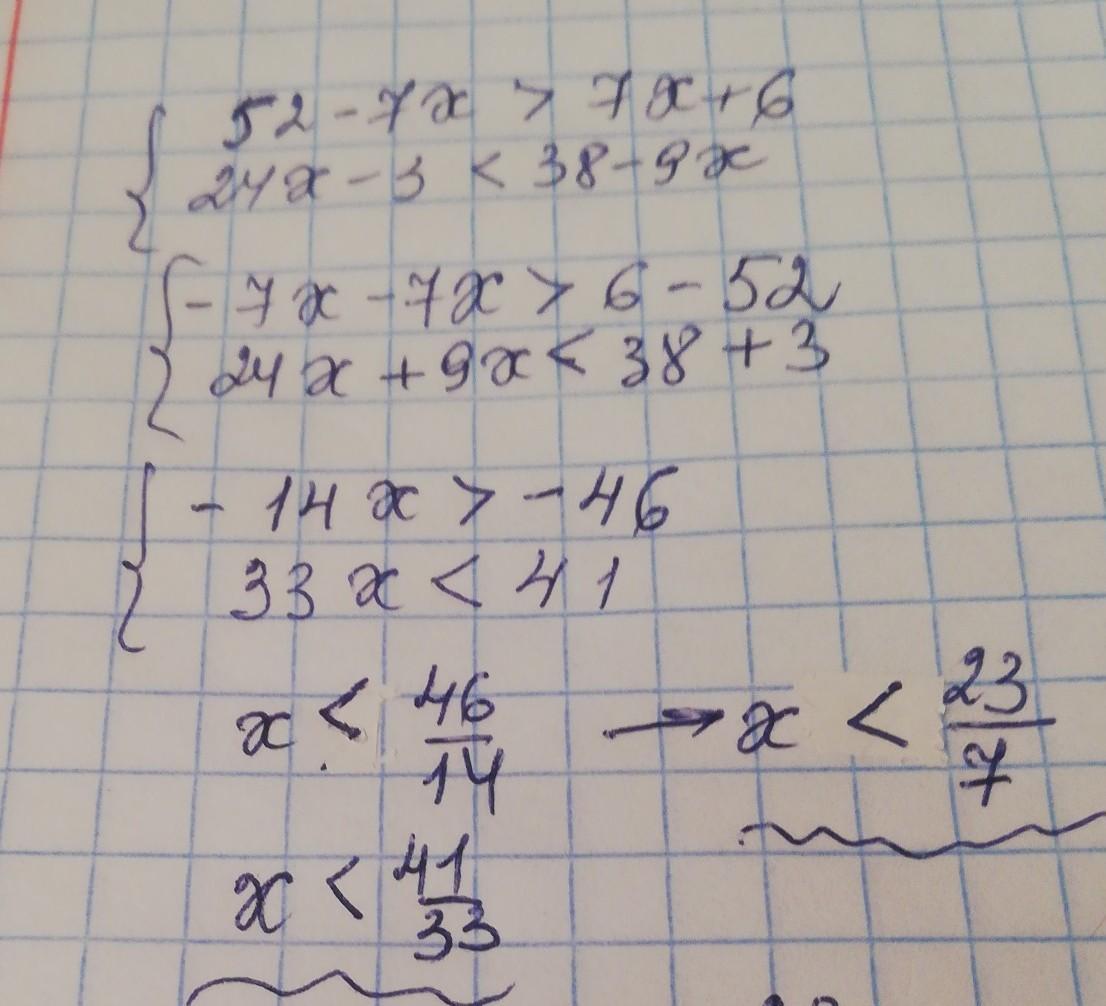 52 - 7x > 7x + 6
24x - 3 < 38 - 9x
- 7x - 7x > 6 - 52
24x + 9x < 38 + 3
- 14x > - 46
33x < 41
x < 46/14 → x < 23/7
x < 41/33